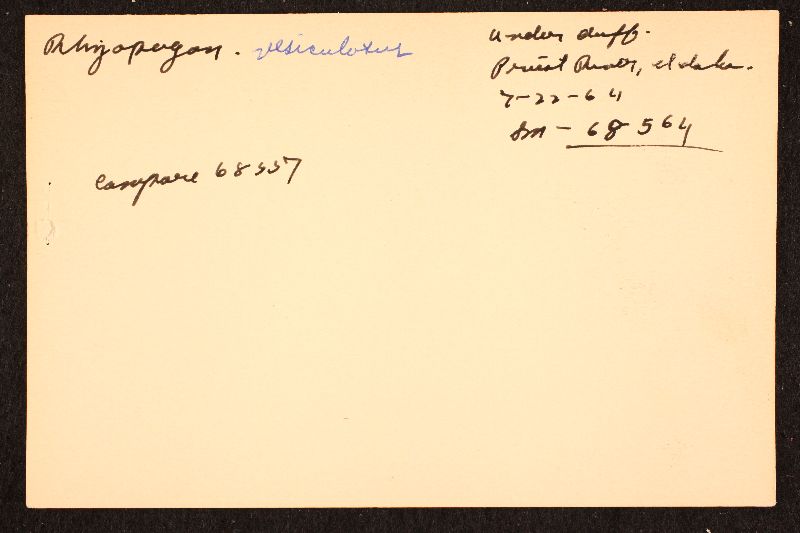 Rhizopogon. vesiculosus
under duff.
Priest River, Idaho.
7-22-64
Sm - 68564
Compare 68557